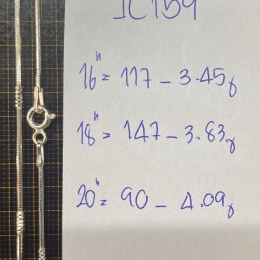 JC159
16"= 117 - 3.45g
18"= 147 - 3.83g
20"= 90 - 4.09g